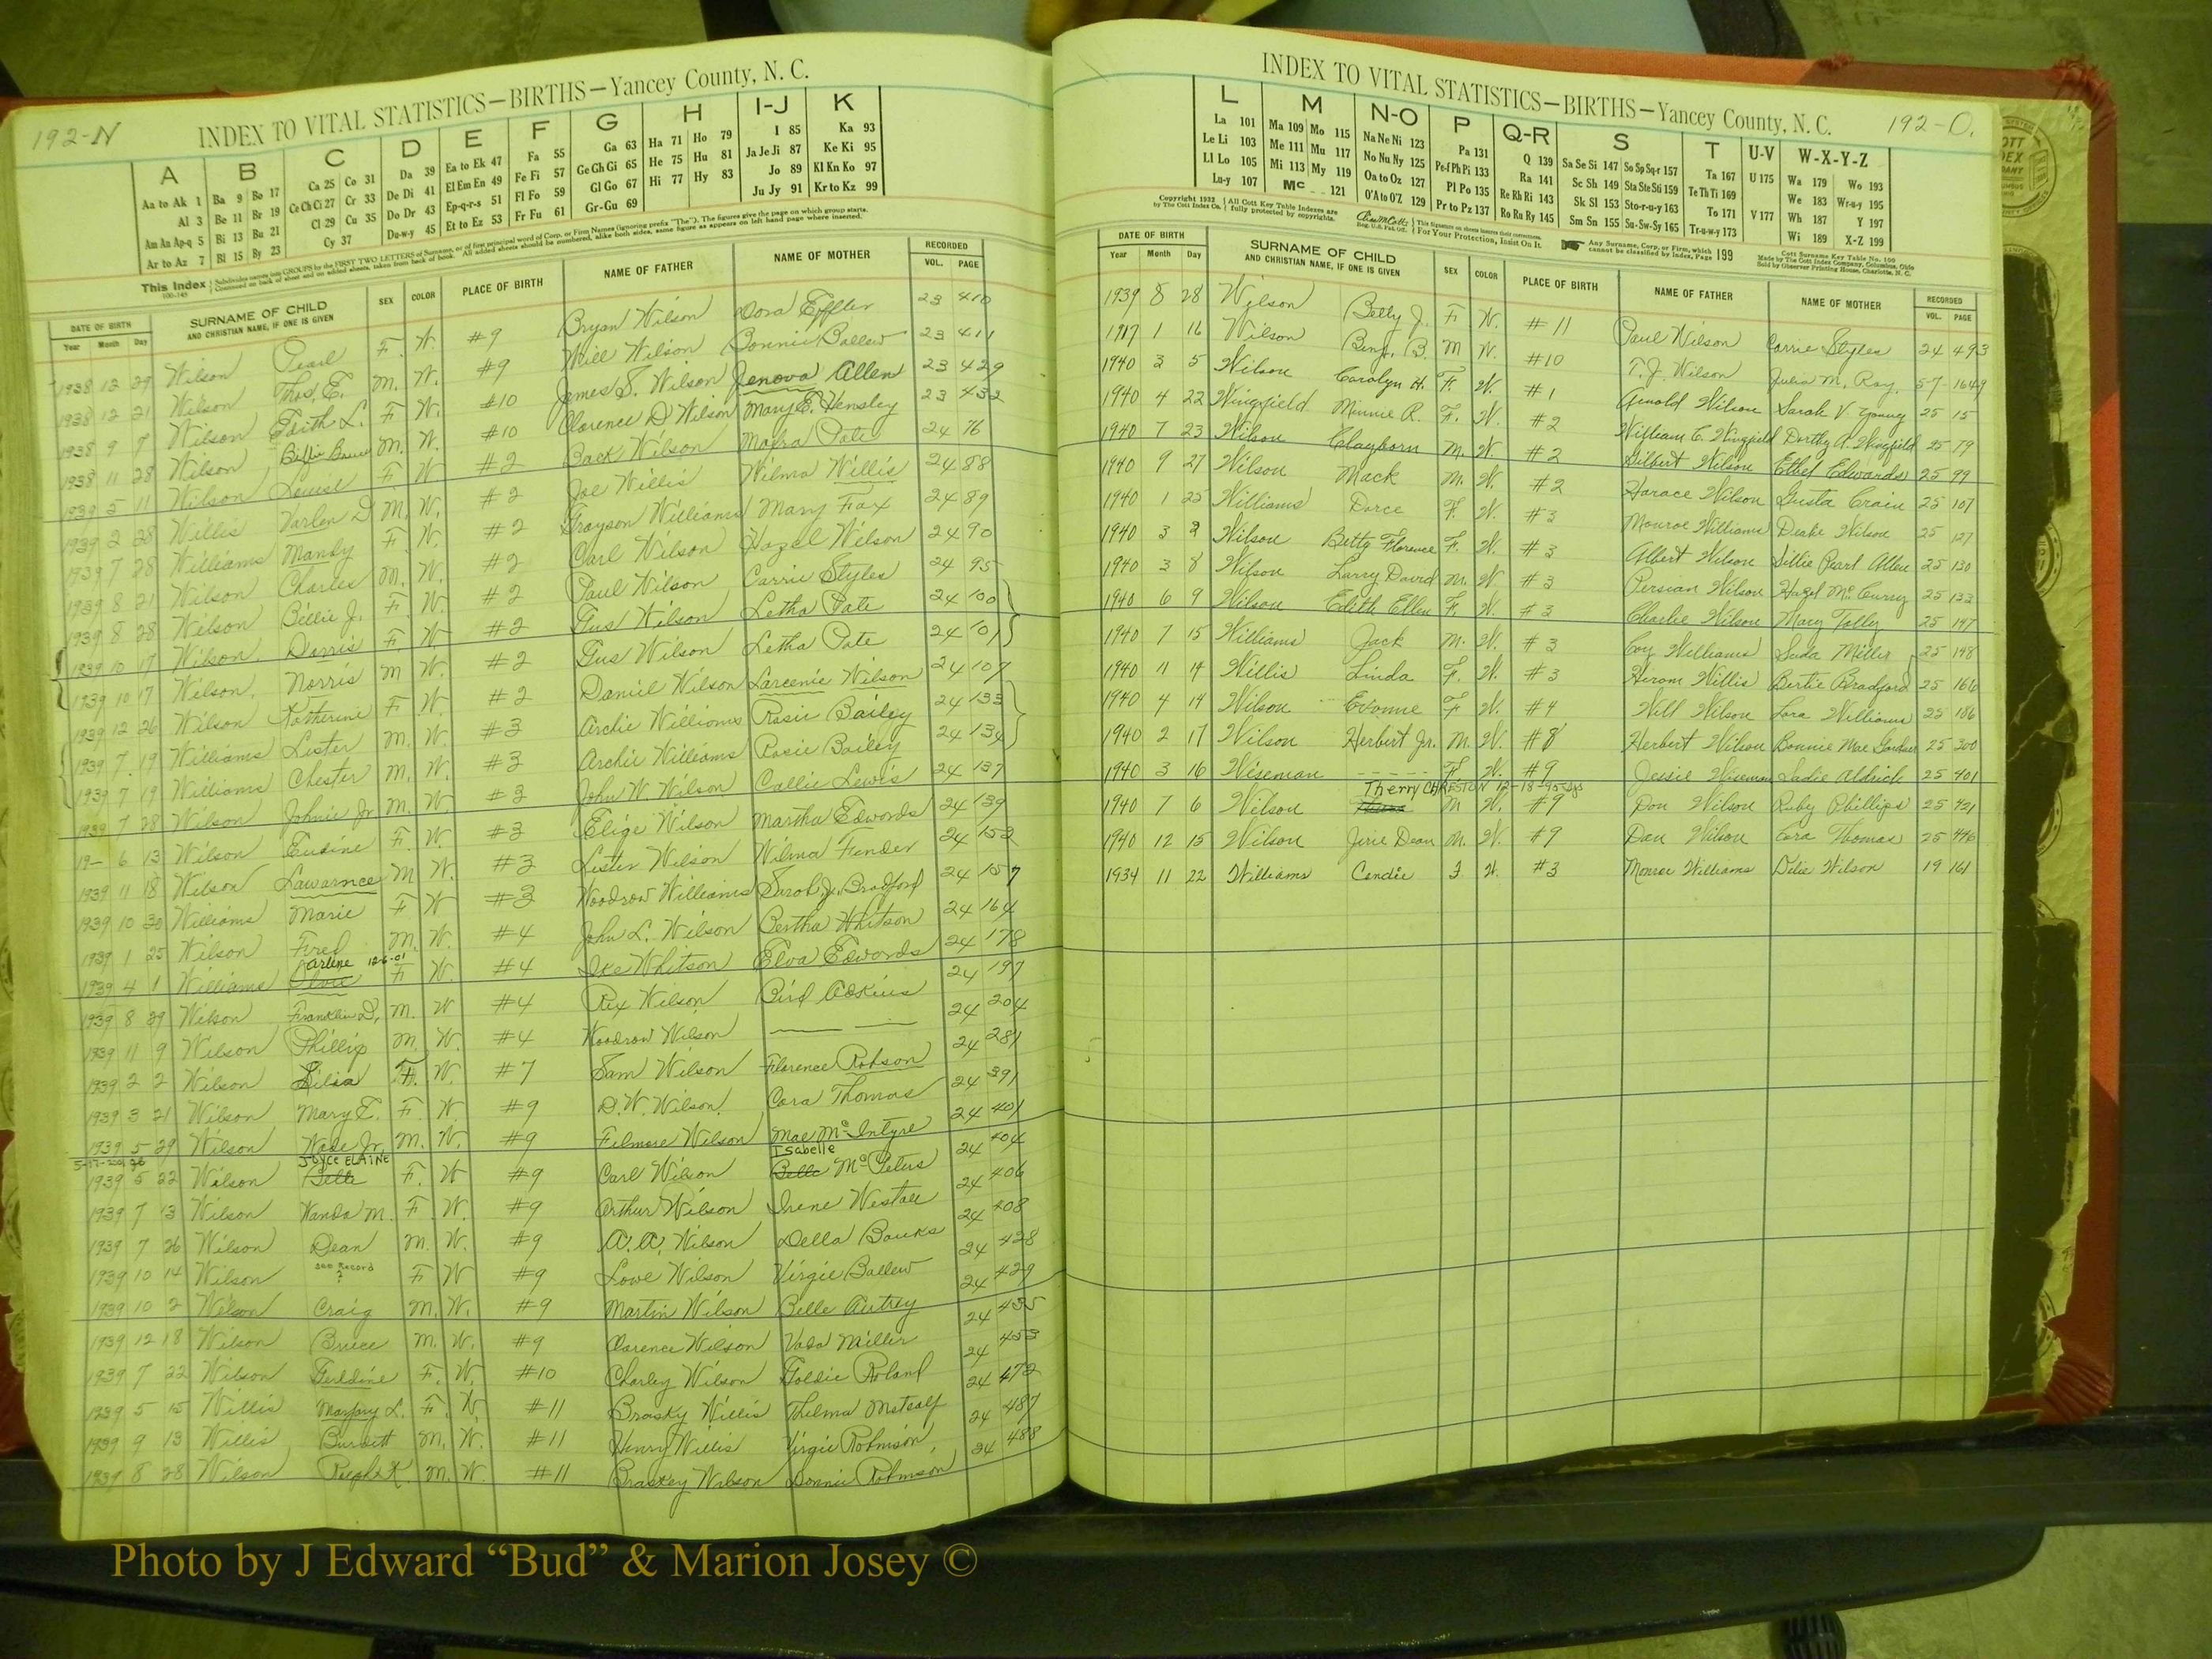 192-N
INDEX TO VITAL STATISTICS—BIRTHS—Yancey County, N. C.
A B C D E F G H I-J K
Aa to Ak 1 Ba 9 Bo 17 Ca 25 Co 31 Da 39 Ea to Ek 47 Fa 55 Ga 63 Ha 71 Ho 79 I 85 Ka 93
Al 3 Be 11 Br 19 Ce Ch Ci 27 Cr 33 De Di 41 El Em En 49 Fe Fi 57 Ge Gh Gi 65 He 75 Hu 81 Ja Je Ji 87 Ke Ki 95
Am An Ap-q 5 Bi 13 Bu 21 Cl 29 Cu 35 Do Dr 43 Ep-q-r-s 51 Fl Fo 59 Gl Go 67 Hi 77 Hy 83 Jo 89 Kl Kn Ko 97
Ar to Az 7 Bl 15 By 23 Cy 37 Du-w-y 45 Et to Ez 53 Fr Fu 61 Gr-Gu 69 Ju Jy 91 Kr to Kz 99
This Index
DATE OF BIRTH SURNAME OF CHILD SEX COLOR PLACE OF BIRTH NAME OF FATHER NAME OF MOTHER RECORDED
Year Month Day AND CHRISTIAN NAME, IF ONE IS GIVEN VOL. PAGE
1938 12 29 Wilson Pearl F. W. #9 Bryan Wilson Dora Effler 23 410
1938 12 21 Wilson Thos. E. M. W. #9 Will Wilson Bonnie Ballew 23 411
1938 9 7 Wilson Edith L. F. W. #10 James S. Wilson Jenova Allen 23 429
1938 11 28 Wilson Billie Bruce M. W. #10 Clarence D Wilson Mary E. Hensley 23 432
1939 5 11 Wilson Louise F. W #2 Back Wilson Mafra Pate 24 76
1939 2 28 Willis Harlen D M. W. #2 Joe Willis Wilma Willis 24 88
1939 7 28 Williams Mandy F. W. #2 Grayson Williams Mary Fox 24 89
1939 8 21 Wilson Charles M. W. #2 Carl Wilson Hazel Wilson 24 90
1939 8 28 Wilson Billie J. F. W. #2 Paul Wilson Carrie Styles 24 95
1939 10 17 Wilson Dorris F. W. #2 Gus Wilson Letha Pate 24 100
1939 10 17 Wilson Norris M W. #2 Gus Wilson Letha Pate 24 101
1939 12 26 Wilson Katherine F W. #2 Daniel Wilson Lareenie Wilson 24 107
1939 7 19 Williams Lester M. W. #3 Archie Williams Rosie Bailey 24 133
1939 7 19 Williams Chester M. W. #3 Archie Williams Rosie Bailey 24 134
1939 7 28 Wilson Johnie Jr M. W. #3 John W. Wilson Callie Lewis 24 137
19— 6 13 Wilson Eudine F. W. #3 Elige Wilson Martha Edwards 24 139
1939 11 18 Wilson Lawarnce M W. #3 Lester Wilson Wilma Fender 24 152
1939 10 30 Williams Marie F W #3 Woodrow Williams Sarah J. Bradford 24 157
1939 1 25 Wilson Fred M. W. #4 John L. Wilson Bertha Whitson 24 164
Arlene 12-6-01
1939 4 1 Williams F W. #4 Ike Whitson Elva Edwards 24 178
1939 8 29 Wilson Franklin D. M. W #4 Rex Wilson Bird Adkins 24 197
1939 11 9 Wilson Phillip M. W. #4 Woodrow Wilson — — 24 204
1939 2 2 Wilson Lilia F. W. #7 Sam Wilson Florence Robson 24 281
1939 3 21 Wilson Mary E. F. W #9 D. W. Wilson Cora Thomas 24 391
1939 5 29 Wilson Wade Jr. M. W. #9 Filmore Wilson Mae McIntyre 24 401
JOYCE ELAINE Isabelle
1939 5 22 Wilson Belle F. W #9 Carl Wilson Belle McPeters 24 404
1939 7 13 Wilson Wanda M. F W. #9 Arthur Wilson Irene Westall 24 406
1939 7 26 Wilson Dean M. W. #9 A. A. Wilson Della Banks 24 408
1939 10 14 Wilson See Record ? F W #9 Love Wilson Virgie Ballew 24 428
1939 10 2 Wilson Craig M. W. #9 Martin Wilson Belle Autrey 24 429
1939 12 18 Wilson Bruce M. W. #9 Clarence Wilson Vada Miller 24 435
1939 7 22 Wilson Geraldine F. W. #10 Charley Wilson Goldie Roland 24 453
1939 5 15 Willis Marjory L. F. W. #11 Brasky Willis Thelma Metcalf 24 472
1939 9 13 Willis Burdett M. W. #11 Henry Willis Virgie Robinson 24 487
1939 8 28 Wilson Ralph K. M. W. #11 Braskey Wilson Donnie Robinson 24 488
INDEX TO VITAL STATISTICS—BIRTHS—Yancey County, N. C.
192-O.
L M N-O P Q-R S T U-V W-X-Y-Z
La 101 Ma 109 Mo 115 Na Ne Ni 123 Pa 131 Q 139 Sa Se Si 147 So Sp Sq-r 157 Ta 167 U 175 Wa 179 Wo 193
Le Li 103 Me 111 Mu 117 No Nu Ny 125 Pe-f Ph Pi 133 Ra 141 Sc Sh 149 Sta Ste Sti 159 Te Th Ti 169 We 183 Wr-u-y 195
Ll Lo 105 Mi 113 My 119 Oa to Oz 127 Pl Po 135 Re Rh Ri 143 Sk Sl 153 Sto-r-u-y 163 To 171 V 177 Wh 187 Y 197
Lu-y 107 Mc 121 O'A to O'Z 129 Pr to Pz 137 Ro Ru Ry 145 Sm Sn 155 Su-Sw-Sy 165 Tr-u-w-y 173 Wi 189 X-Z 199
Copyright 1932 by The Cott Index Co. All Cott Key Table Indexes are fully protected by copyrights. This Signature on sheets insures their correctness. For Your Protection, Insist On It. Any Surname, Corp. or Firm, which cannot be classified by Index, Page 199 Cott Surname Key Table No. 100 Made by The Cott Index Company, Columbus, Ohio Sold by Observer Printing House, Charlotte, N. C.
DATE OF BIRTH SURNAME OF CHILD SEX COLOR PLACE OF BIRTH NAME OF FATHER NAME OF MOTHER RECORDED
Year Month Day AND CHRISTIAN NAME, IF ONE IS GIVEN VOL. PAGE
1939 8 28 Wilson Betty J. F W. #11 Paul Wilson Carrie Styles 24 493
1917 1 16 Wilson Benj. B. M W. #10 T. J. Wilson Julia M. Ray 57 1649
1940 3 5 Wilson Carolyn H. F. W. #1 Arnold Wilson Sarah V. Young 25 15
1940 4 22 Wingfield Minnie R. F. W. #2 William C. Wingfield Dorthy A. Wingfield 25 79
1940 7 23 Wilson Clayborn M. W. #2 Dilbert Wilson Ethel Edwards 25 99
1940 9 27 Wilson Mack M. W. #2 Horace Wilson Gusta Crain 25 107
1940 1 25 Williams Dorce F. W. #3 Monroe Williams Deake Wilson 25 127
1940 3 2 Wilson Betty Florence F. W. #3 Albert Wilson Lillie Pearl Allen 25 130
1940 3 8 Wilson Larry David M. W #3 Persian Wilson Hazel McCurry 25 133
1940 6 9 Wilson Edith Ellen F. W. #3 Charlie Wilson Mary Tolly 25 147
1940 7 15 Williams Jack M. W. #3 Coy Williams Leda Miller 25 148
1940 11 14 Willis Linda F. W. #3 Hiram Willis Bertie Bradford 25 166
1940 4 14 Wilson Evonne F W. #4 Will Wilson Lora Williams 25 186
1940 2 17 Wilson Herbert Jr. M. W. #8 Herbert Wilson Bonnie Mae Gardner 25 300
1940 3 16 Wiseman ----- F W. #9 Jessie Wiseman Sadie Aldrich 25 401
Therry CHRESTON 12-18-95
1940 7 6 Wilson M W. #9 Don Wilson Ruby Phillips 25 421
1940 12 15 Wilson Jerie Dean M. W. #9 Dan Wilson Cora Thomas 25 446
1934 11 22 Williams Candie F W. #3 Monroe Williams Delie Wilson 19 161
Photo by J Edward “Bud” & Marion Josey ©